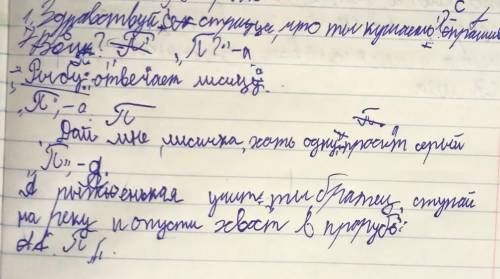 1. Здравствуй, сестрица, что ты кушаешь? спрашив
Волк? „П?" - а
- Рыбу - отвечает лисица.
„П", - а. П
Дай мне, лисичка, хоть одну, просит серый
„П", - а.
А рыженькая учит: ты братец, ступай
на реку и опусти хвост в прорубь.
А: „П".